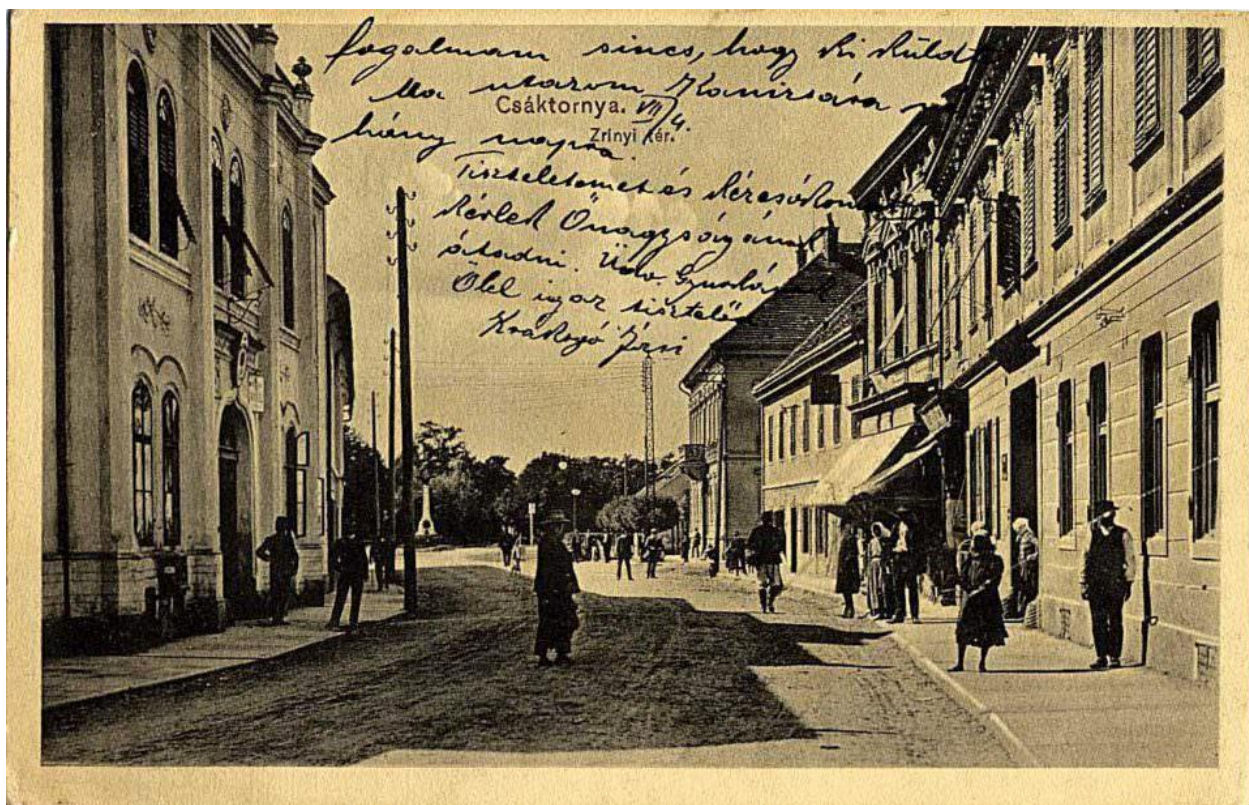 fogalmam sincs, hogy ki küld
Ma utazom Kanizsára
Csáktornya. VII/4.
Zrinyi tér.
hány napra.
Tiszteletemet és kézcsókom
kérlek Önagyságának
átadni. Üdv.
Ölel igaz tisztelőd
Józsi